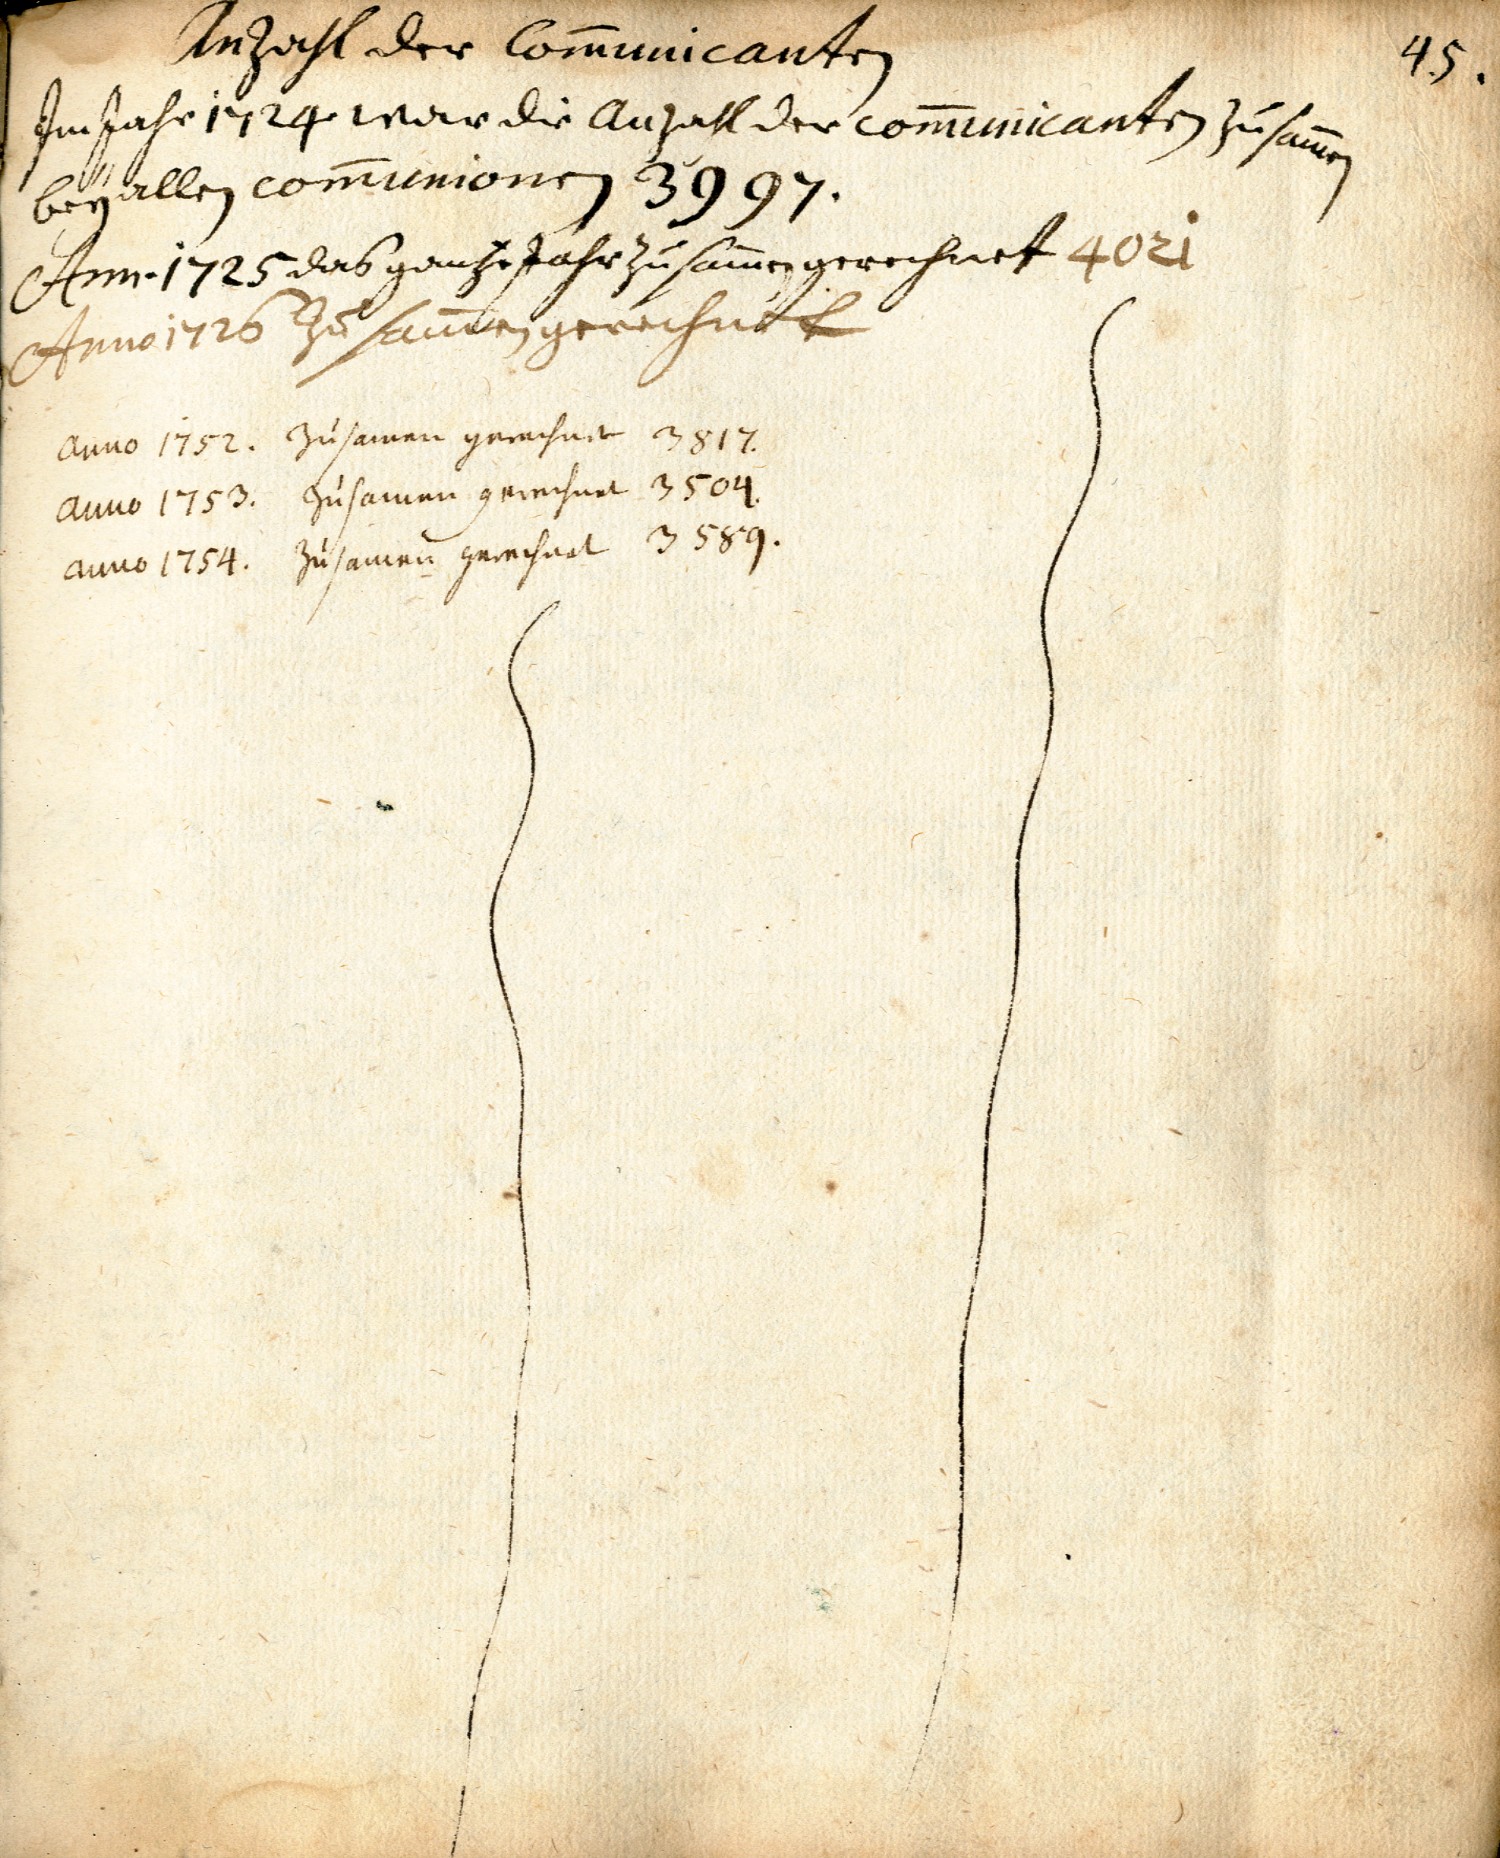 45.
Anzahl der Com̄unicanten
Im Jahr 1724 war die Anzahl der com̄unicanten zusam̄en
beÿ allen com̄unionen 3997.
Anno 1725 das gantze Jahr zusam̄en gerechnet 4021
Anno 1726 zusam̄en gerechnet
Anno 1752. zusamen gerechnet 3817.
Anno 1753. zusamen gerechnet 3504.
Anno 1754. zusamen gerechnet 3589.